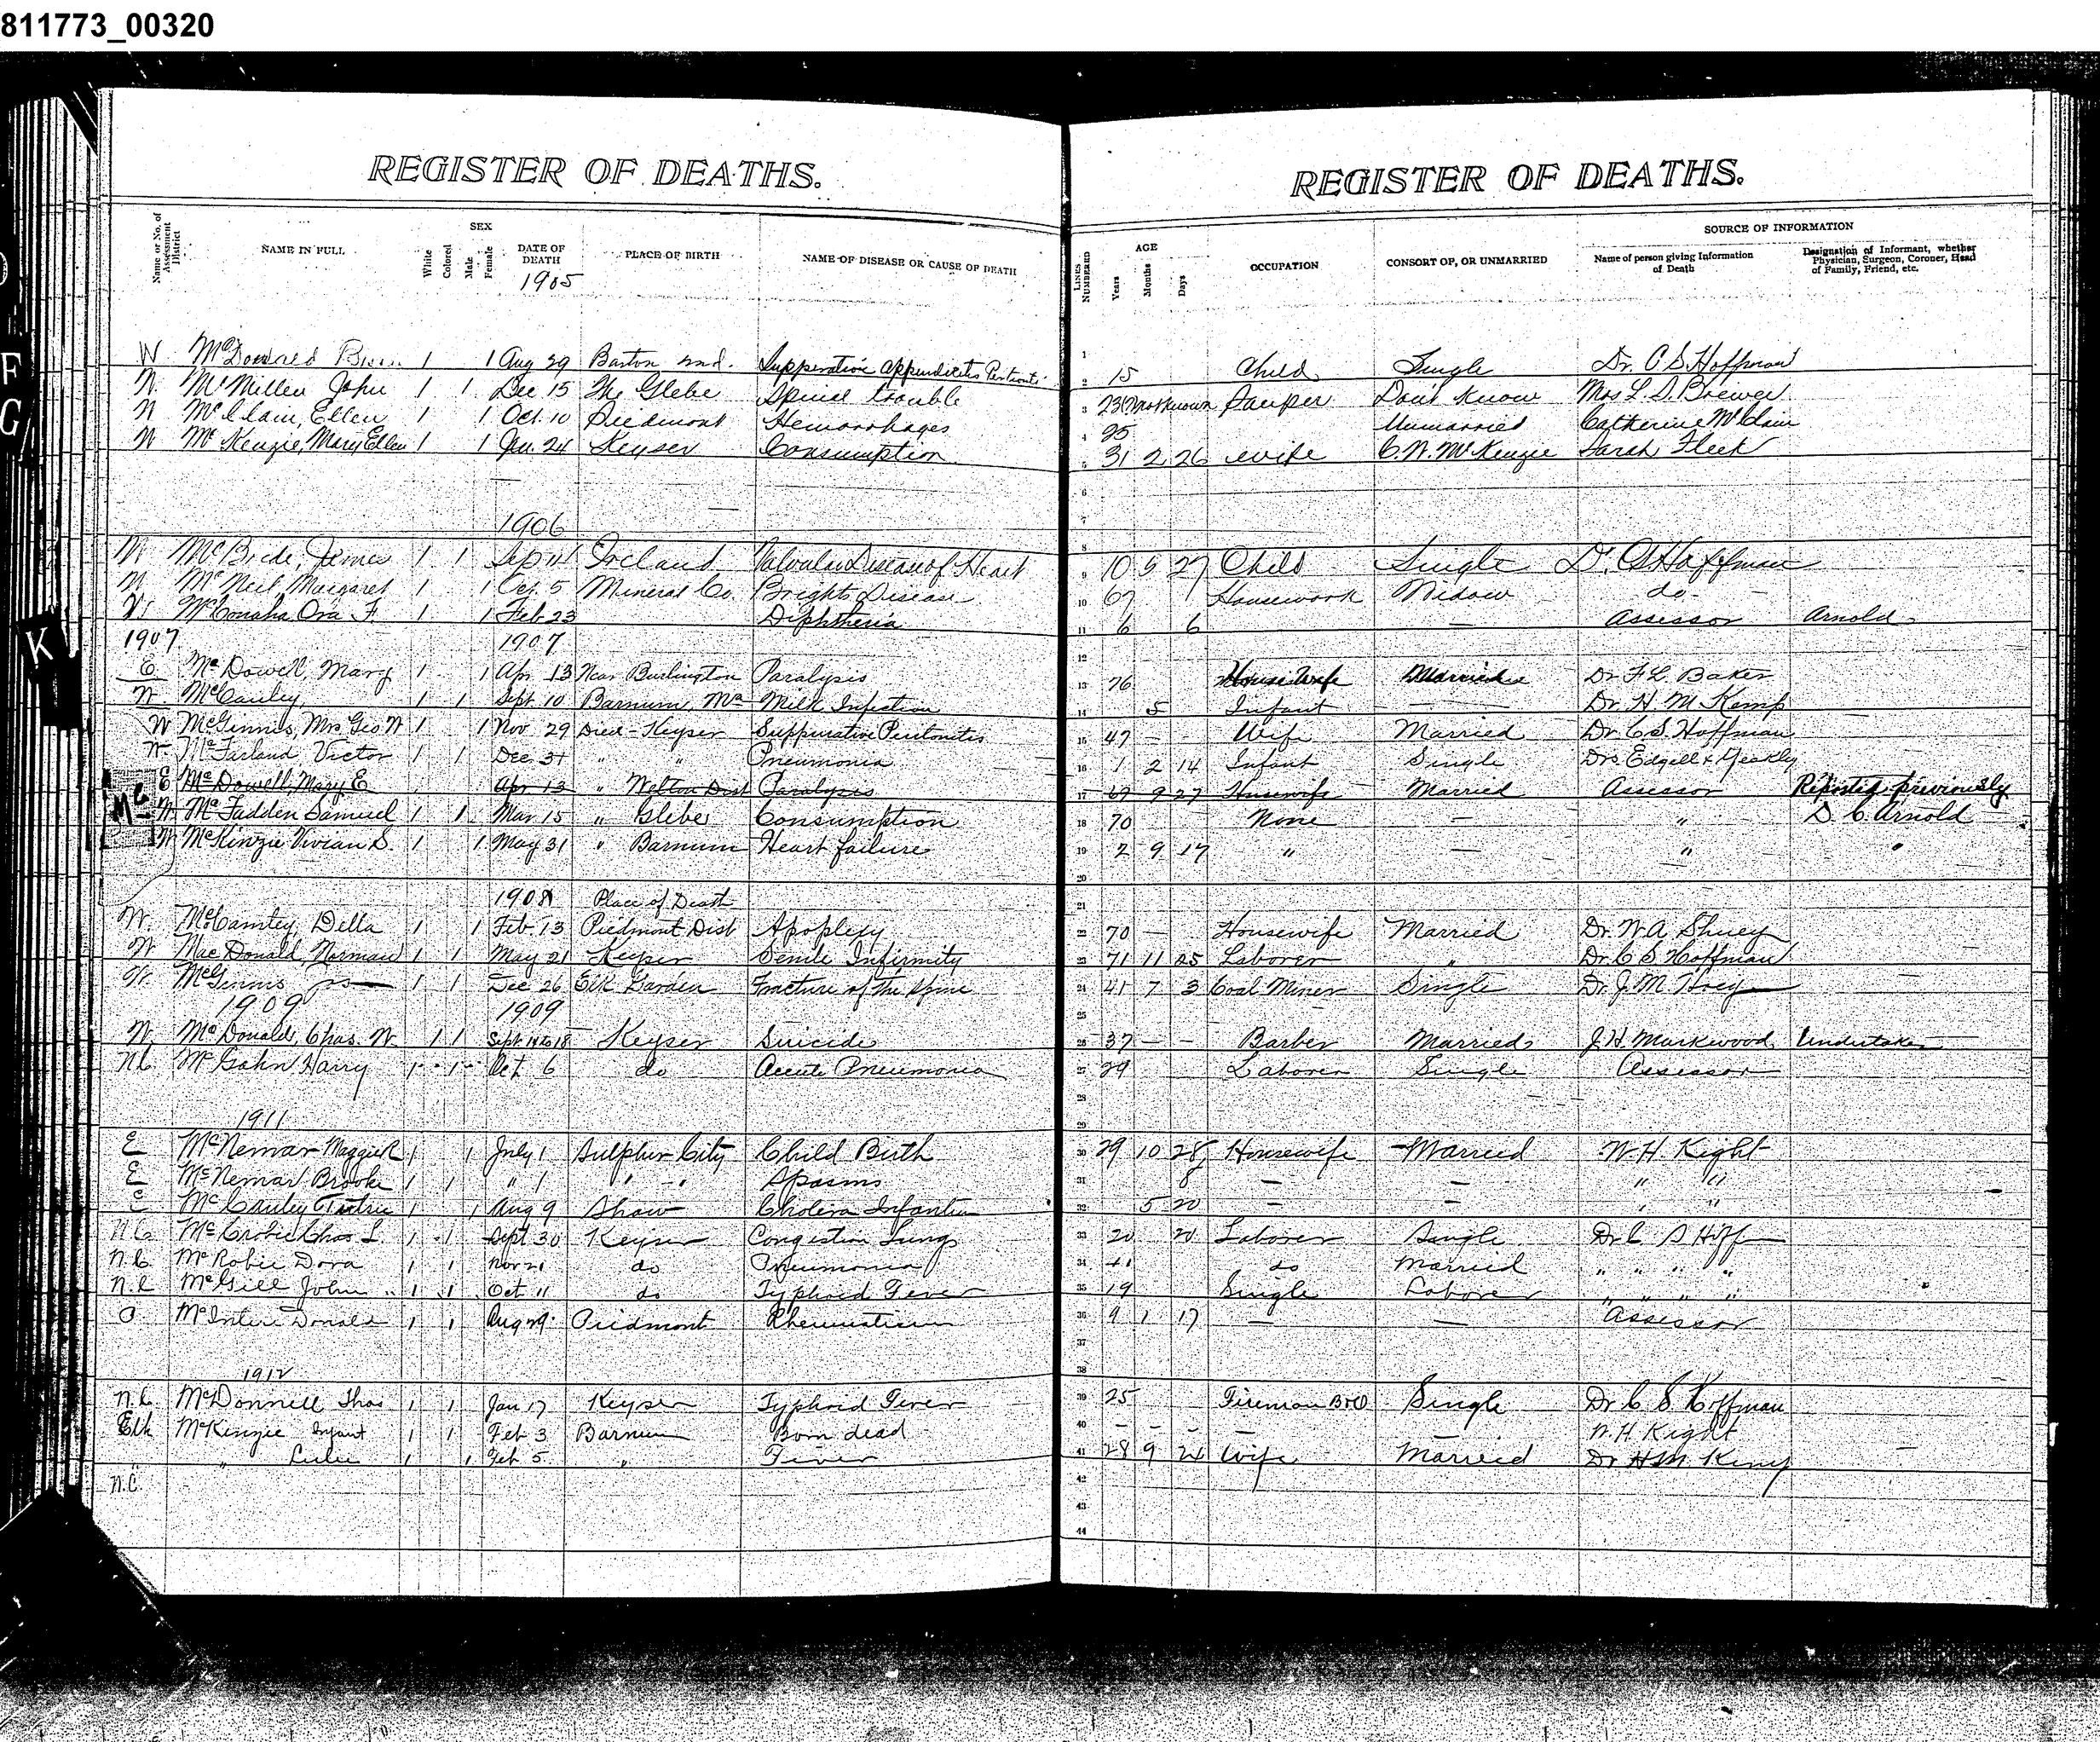 811773_00320
REGISTER OF DEATHS.
REGISTER OF DEATHS.
Name or No. of Assessment District
NAME IN FULL
White
Colored
SEX
Male
Female
DATE OF DEATH
1905
PLACE OF BIRTH
NAME OF DISEASE OR CAUSE OF DEATH
LINES NUMBERED
AGE
Years
Months
Days
OCCUPATION
CONSORT OF, OR UNMARRIED
SOURCE OF INFORMATION
Name of person giving Information of Death
Designation of Informant, whether Physician, Surgeon, Coroner, Head of Family, Friend, etc.
W McDonald 1 1 Aug 29 Barton Md. Suppurative Appendicitis 15 Child Single Dr. C S Hoffman
W. McMillen John 1 1 Dec 15 The Glebe Spinal trouble 23 Pauper Don't Know Mrs L. D. Brewer
W McClain, Ellen 1 1 Oct. 10 Piedmont Hemorrhages 25 Unmarried Catherine McClain
W McKenzie, Mary Ellen 1 1 Jan. 24 Keyser Consumption 31 2 26 Wife C. W. McKenzie Sarah Fleek
1906
W McBride, James 1 1 Sep 11 Ireland Valvular Disease of Heart 10 5 27 Child Single Dr. C S Hoffman
W McNeil, Margaret 1 1 Oct. 5 Mineral Co. Brights Disease 67 Housework Widow do
W McConaha Ora F. 1 1 Feb 23 Diphtheria 6 6 — Assessor Arnold
1907 1907
E McDowell, Mary 1 1 Apr. 13 Near Burlington Paralysis 76 Housewife Married Dr F. L. Baker
W McCauley, 1 1 Sept. 10 Barnum, Infection 5 Infant — Dr. H. M. Kemp
W McGinnis, Mrs. Geo W 1 1 Nov 29 Died - Keyser Suppurative Peritonitis 47 — — Wife Married Dr. C. S. Hoffman
W McFarland Victor 1 1 Dec. 31 " " Pneumonia 1 2 14 Infant Single Drs. Edgell & Yeakley
E McDowell, Mary E 1 Apr 13 " Welton Dist Paralysis 69 9 27 Housewife Married Assessor Reported previously
Mc
W McFadden Samuel 1 1 Mar 15 " Glebe Consumption 70 None — " D. C. Arnold
W McKinzie Vivian S. 1 1 May 31 " Barnum Heart failure 2 9 17 " — " "
1908 Place of Death
W. McCamley, Della 1 1 Feb. 13 Piedmont Dist Apoplexy 70 — Housewife Married Dr. W. A. Shuey
W MacDonald, Norman 1 1 May 21 Keyser Senile Infirmity 71 11 25 Laborer " Dr. C S Hoffman
W. McGinnis 1 1 Dec 26 Elk Garden Fracture of the Spine 41 7 3 Coal Miner Single Dr. J. M.
1909 1909
W. McDonald, Chas. W. 1 1 Sept Keyser Suicide 37 — — Barber Married J. H. Markwood Undertaker
N.C. McGahn Harry 1 1 Oct. 6 do Accute Pneumonia 29 Laborer Single Assessor
1911
E McNemar Maggie R 1 1 July 1 Sulphur City Child Birth 29 10 28 Housewife Married W. H. Kight
E McNemar Brooke 1 1 " 1 " " Spasms 8 — — " "
E McCauley 1 1 Aug 9 Shaw Cholera Infantum 5 20 — — " "
N C McCrobie Chas L. 1 1 Sept 30 Keyser Congestion Lungs 20 20 Laborer Single Dr C S Hoff
N.C. McRobie Dora 1 1 Nov 21 do Pneumonia 41 do Married " " " "
N.C McGill John 1 1 Oct 11 do Typhoid Fever 19 Single Laborer " " " "
McIntire Donald 1 1 Aug 29 Piedmont Rheumatism 9 1 17 — — Assessor
1912
N.C. McDonnell Thos 1 1 Jan 17 Keyser Typhoid Fever 25 Fireman B&O Single Dr C S Hoffman
Elk McKinzie Infant 1 1 Feb 3 Barnum Born dead — — — — — W. H. Kight
" " Lulu 1 1 Feb 5 " Fever 28 9 Wife Married Dr H M Kemp
N.C.
K
F
G